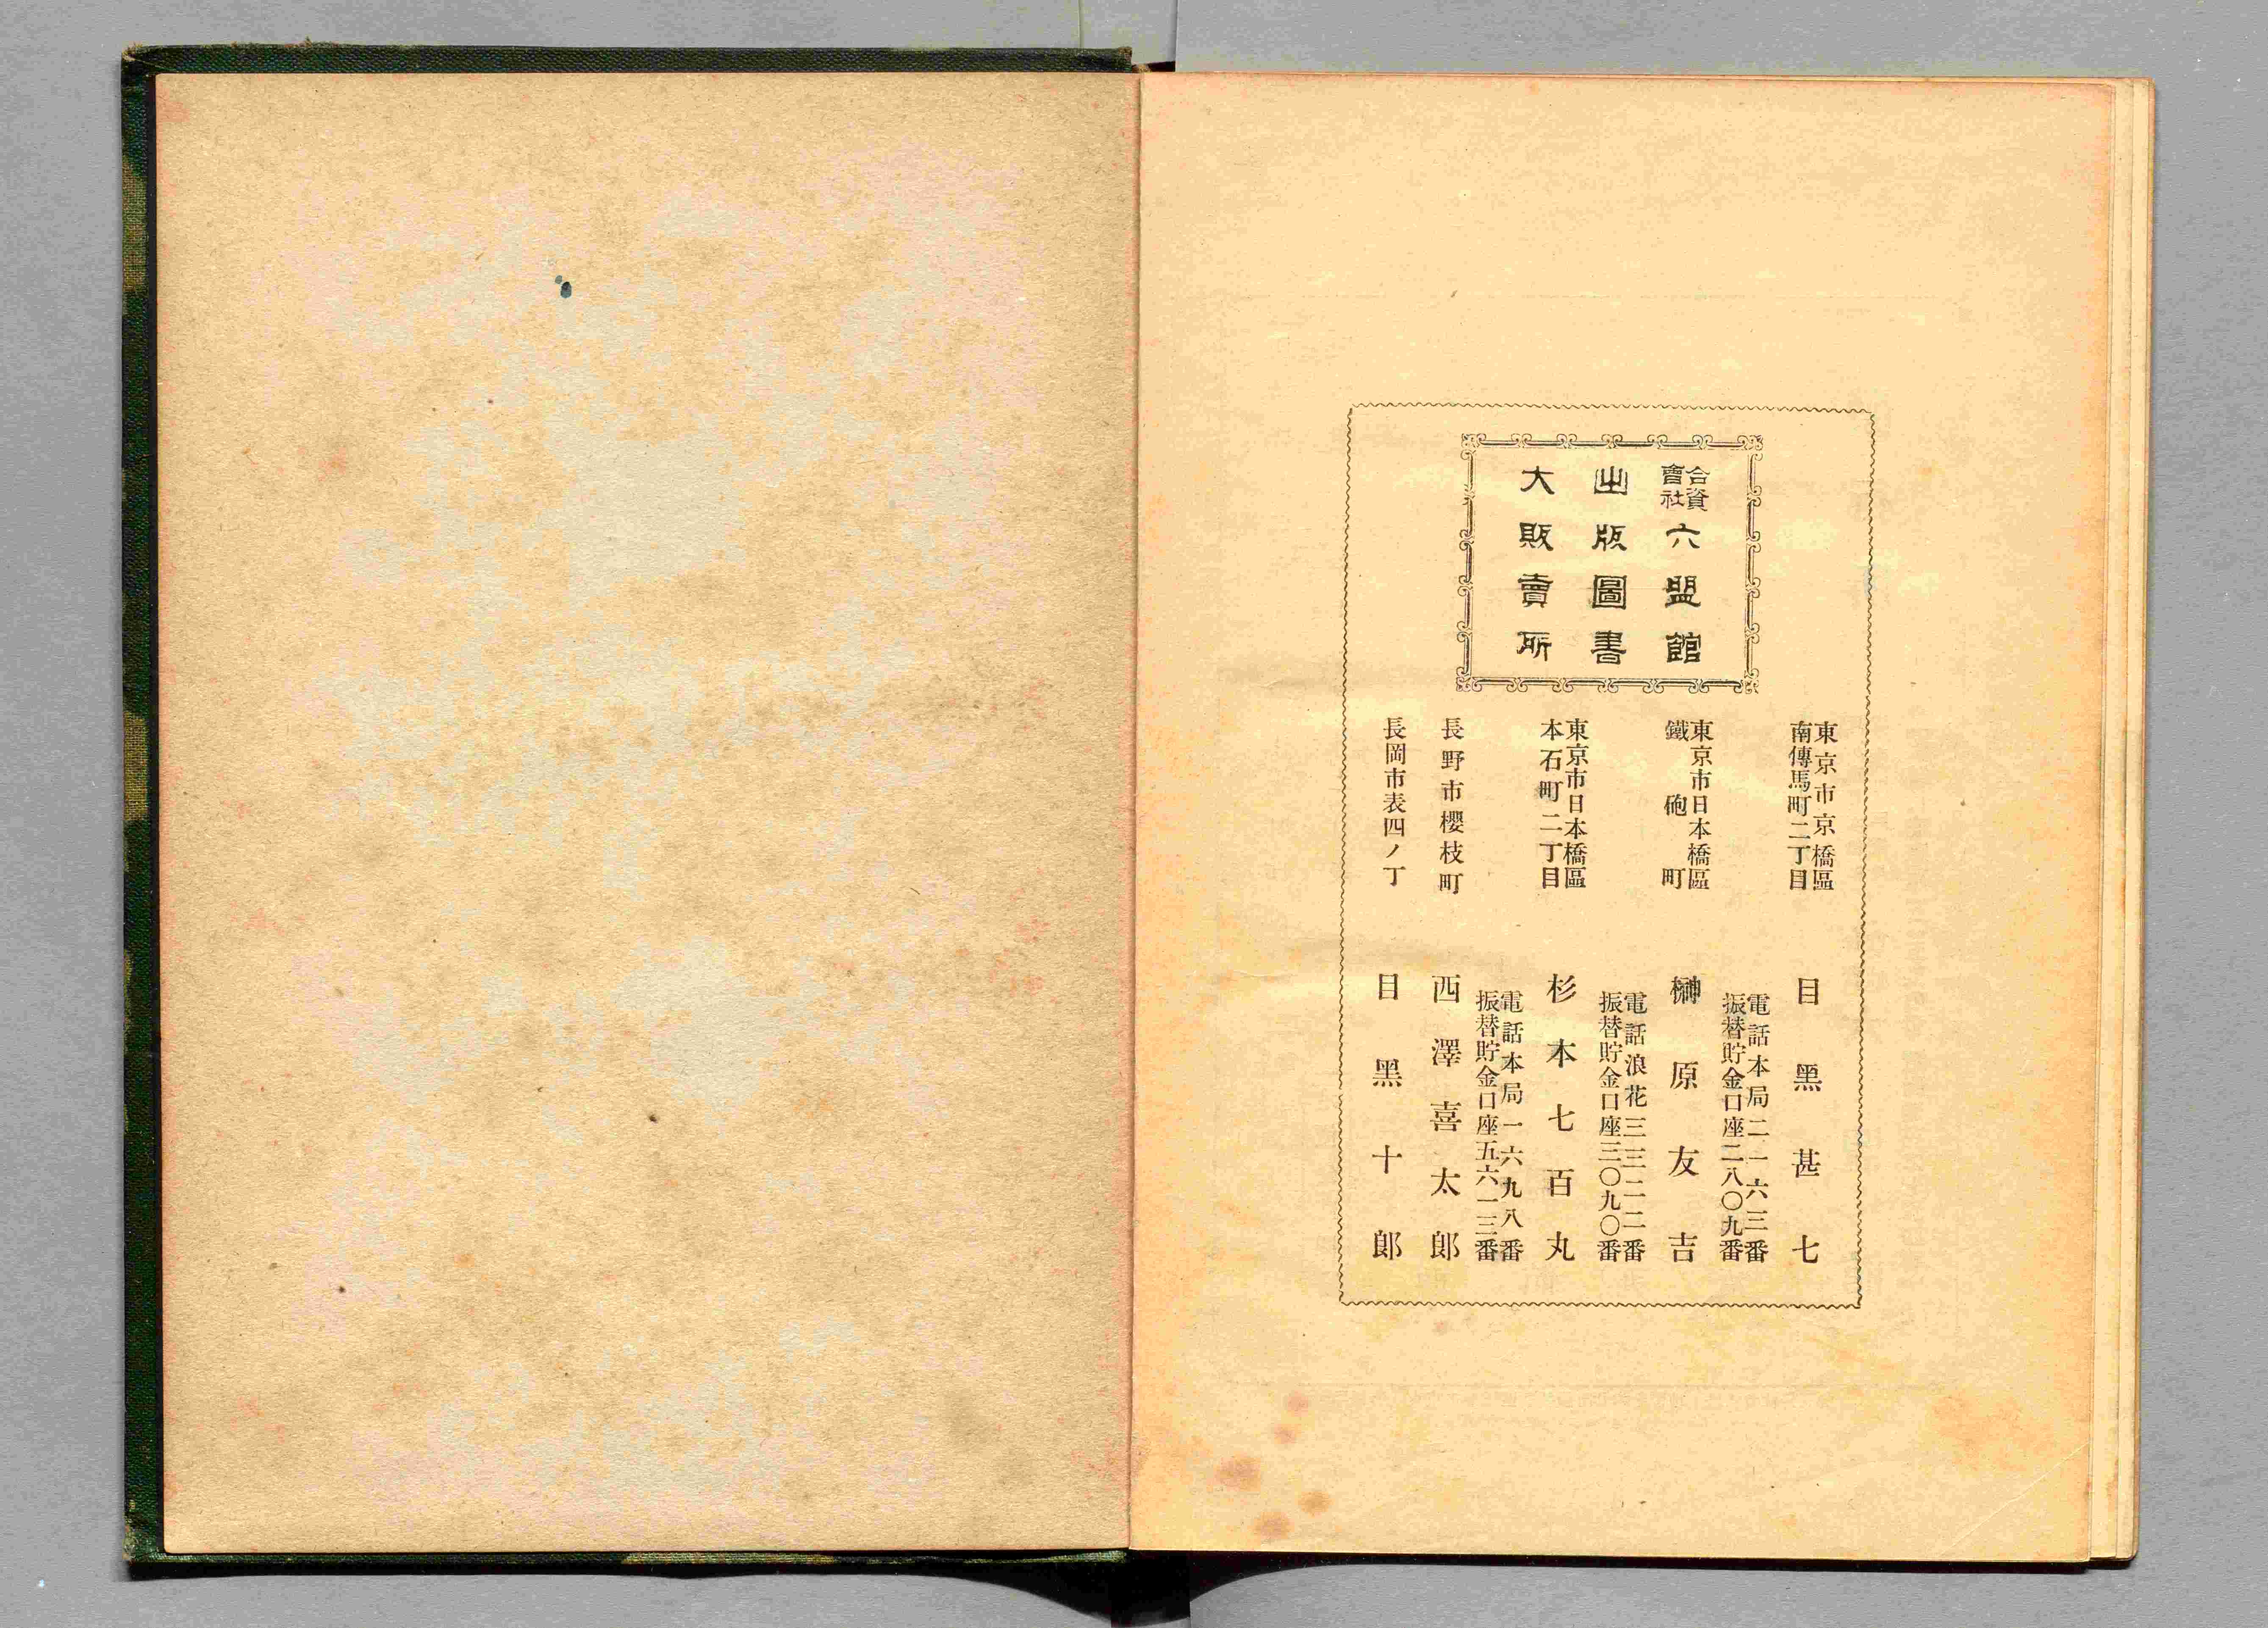 合資會社六盟館
出版圖書
大販賣所
東京市京橋區
南傳馬町二丁目
目黑甚七
電話本局二一六三番
振替貯金口座二八〇九番
東京市日本橋區
鐵砲町
榊原友吉
電話浪花三三二二番
振替貯金口座三〇九〇番
東京市日本橋區
本石町二丁目
杉本七百丸
電話本局一六九八番
振替貯金口座五六一三番
長野市櫻枝町
西澤喜太郎
長岡市表四ノ丁
目黑十郎